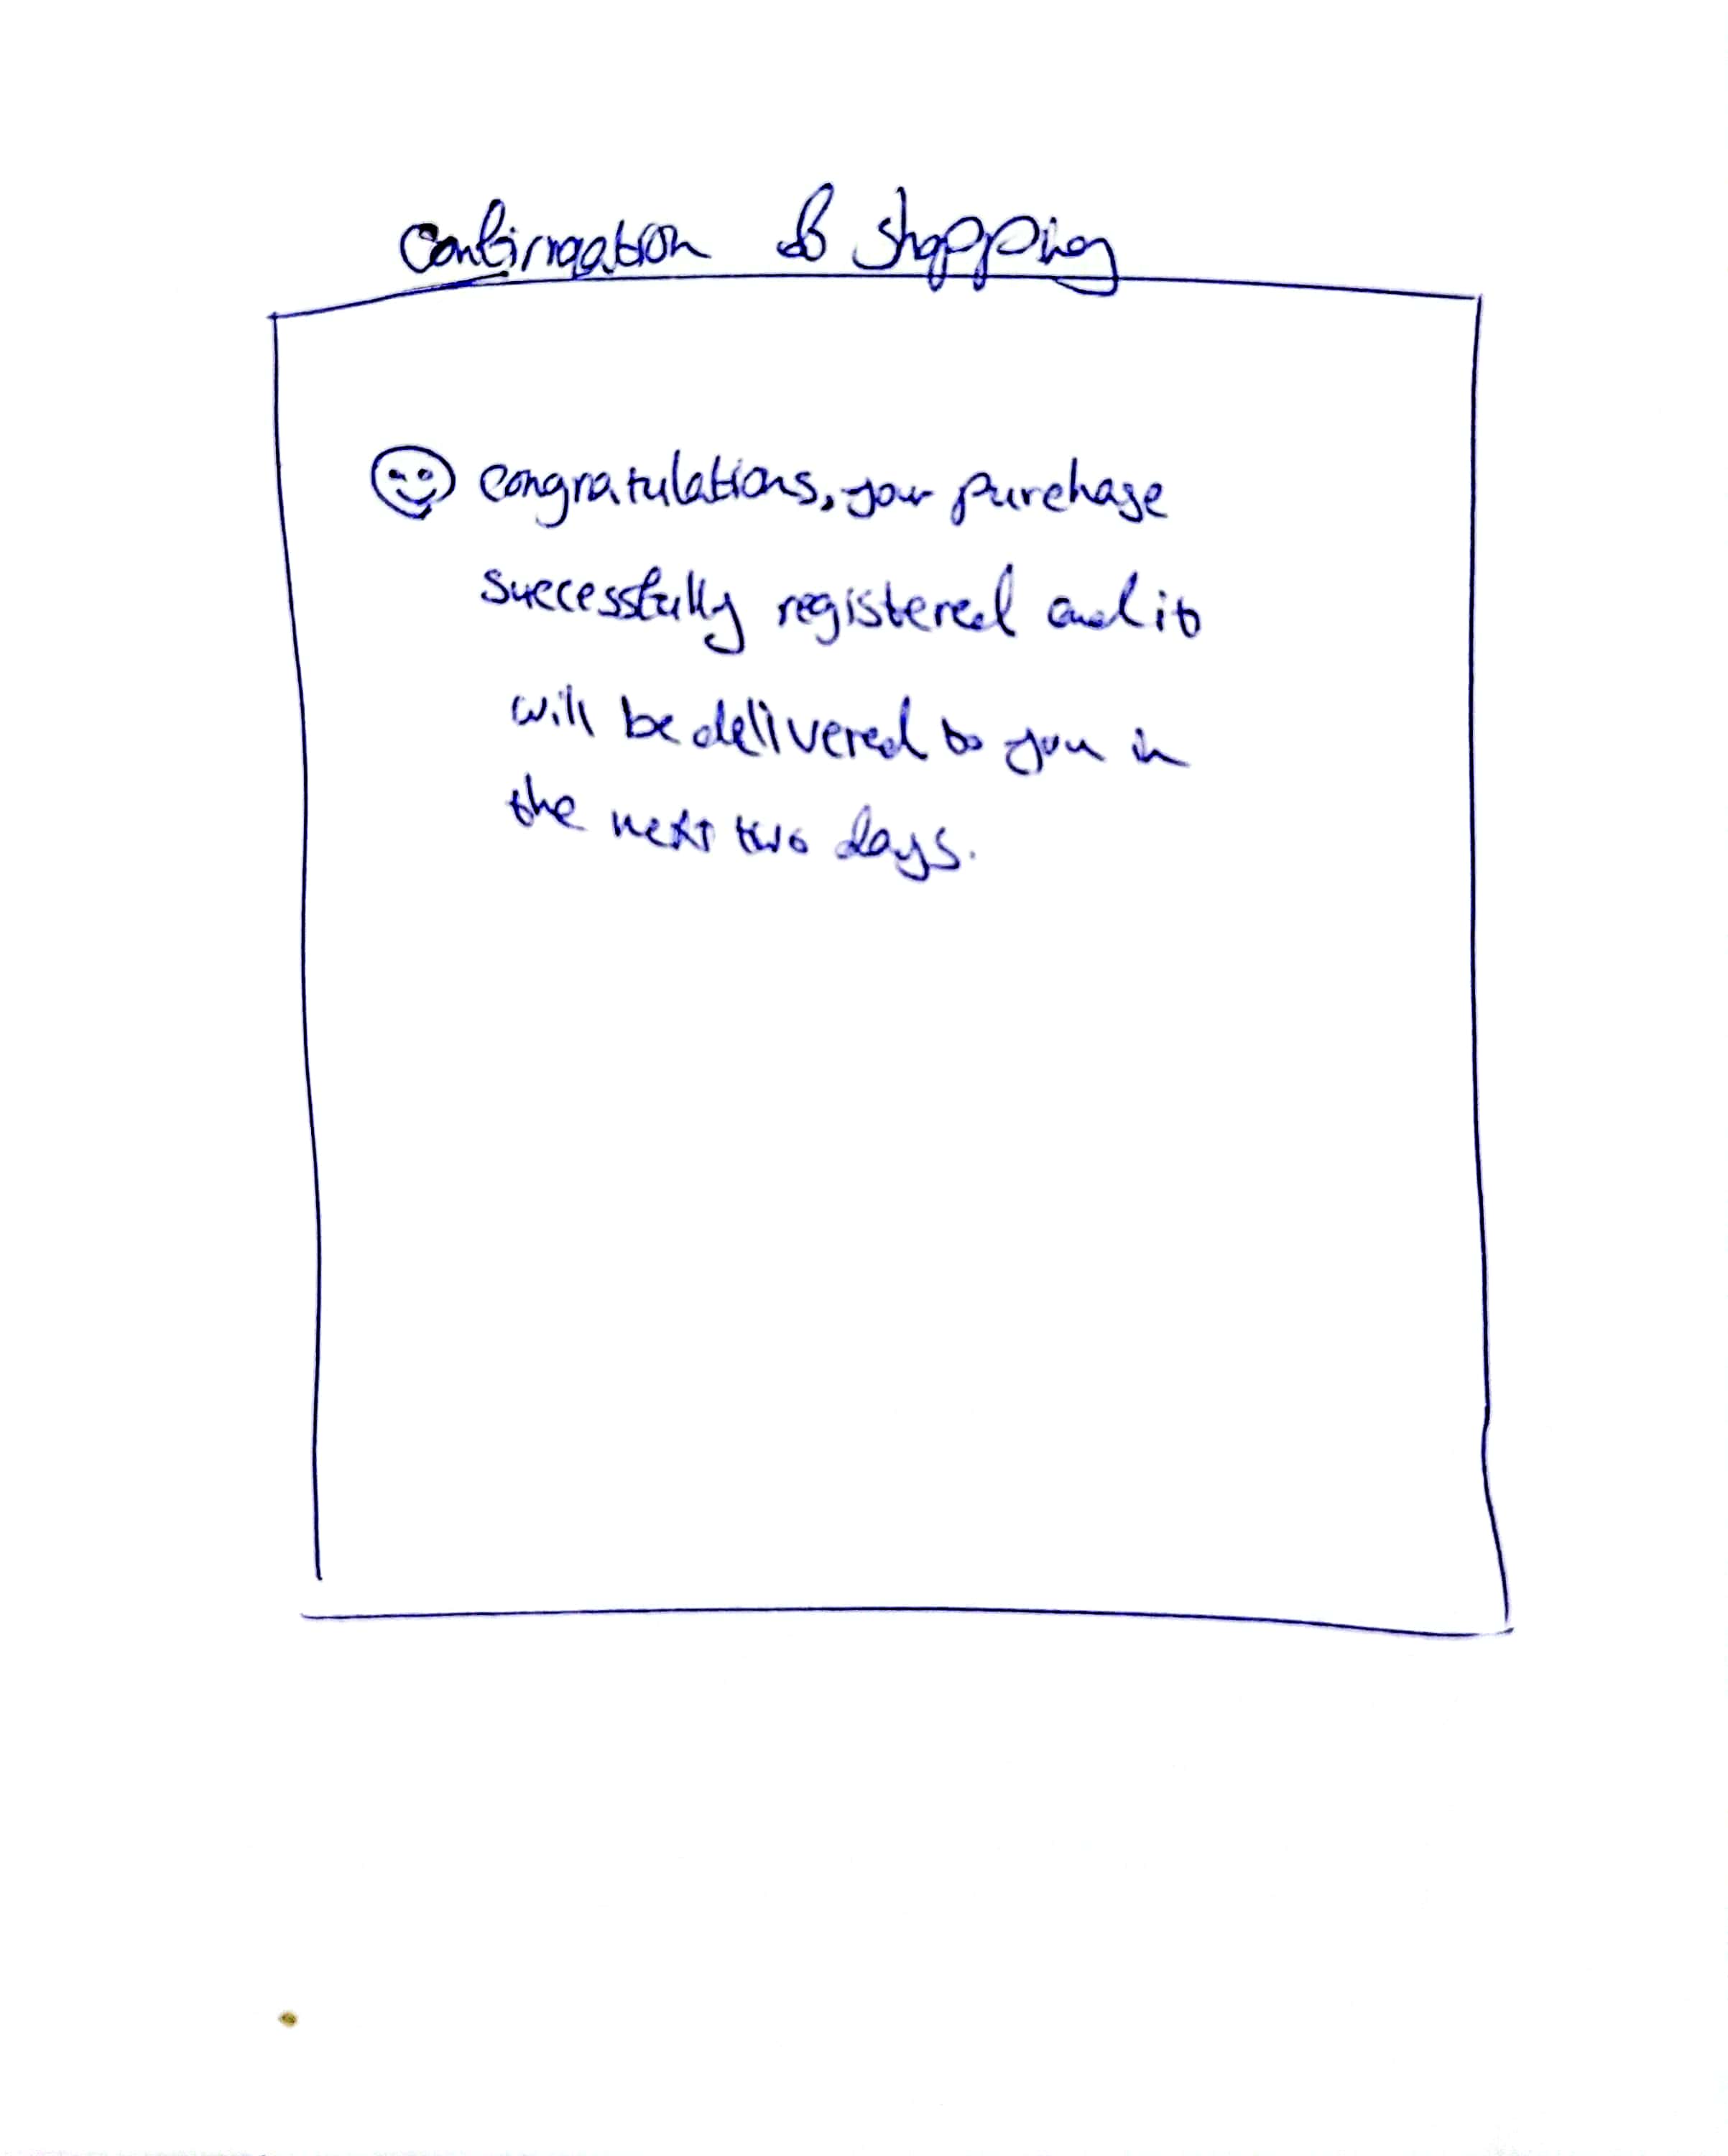 Confirmation of shopping
congratulations, your purchase
successfully registered and it
will be delivered to you in
the next two days.